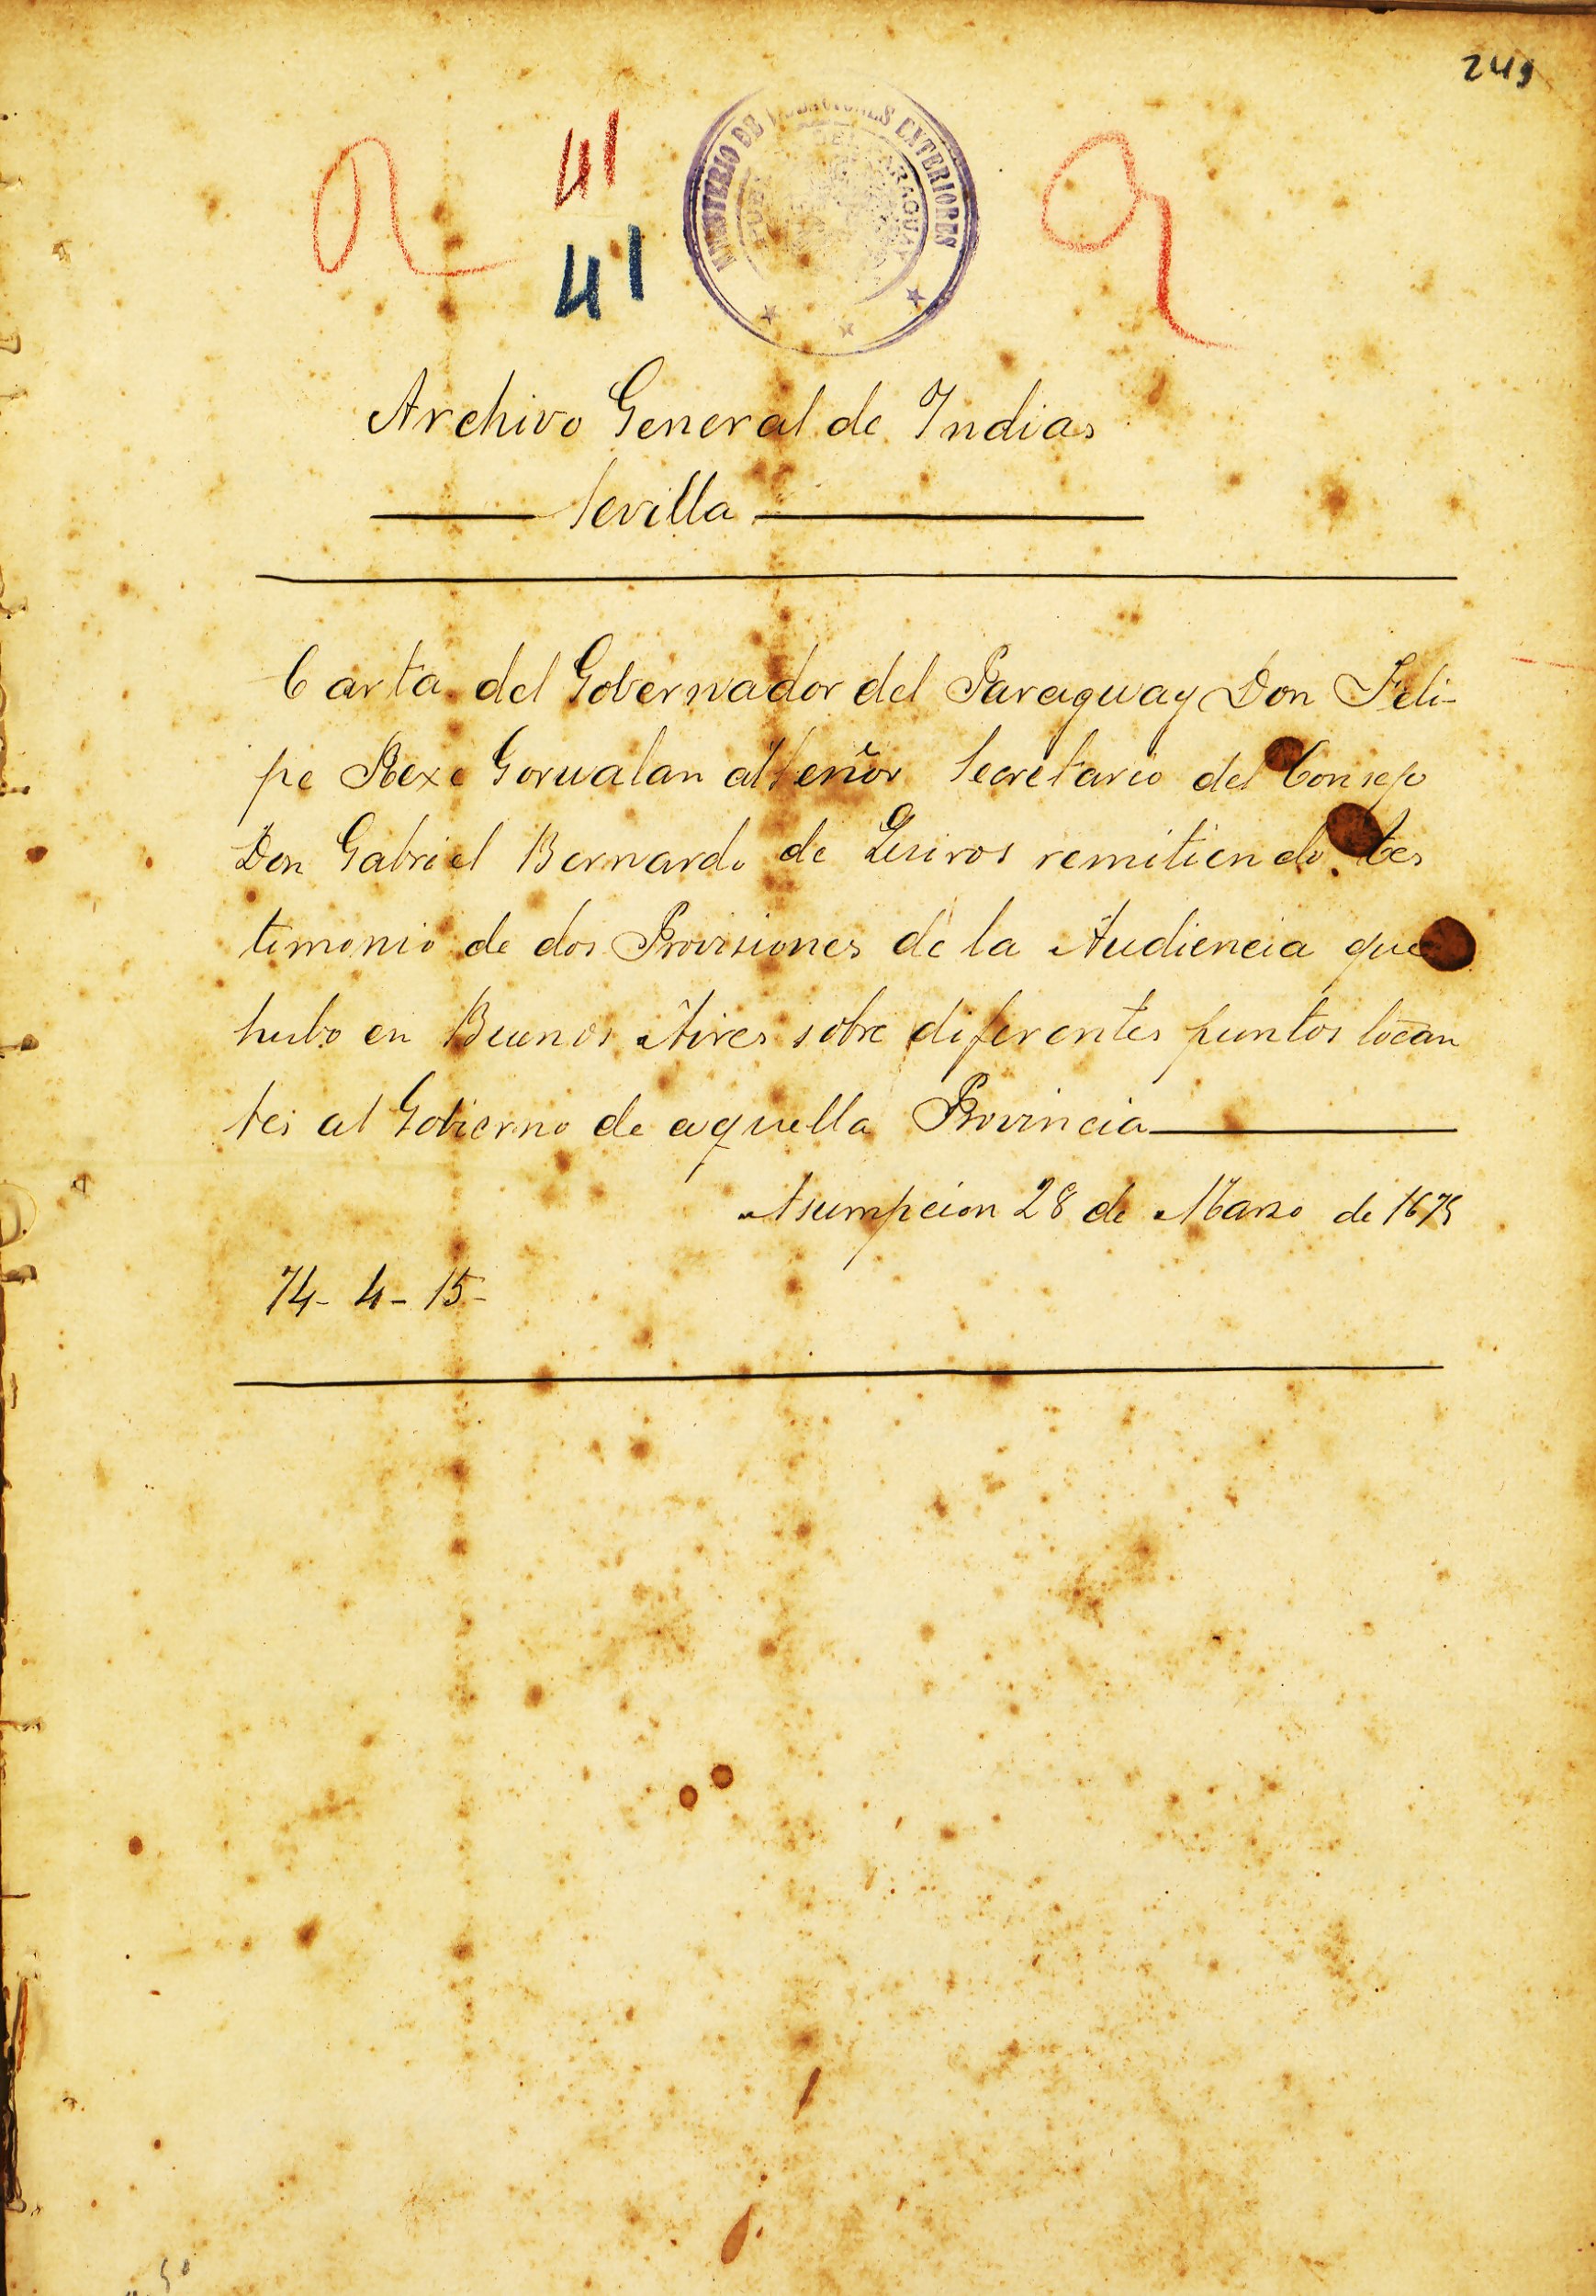 249
41
41
MINISTERIO DE RELACIONES EXTERIORES
DEL PARAGUAY
Archivo General de Indias
Sevilla
Carta del Gobernador del Paraguay Don Feli-
pe Rexe Gorvalan al Señor Secretario del Consejo
Don Gabriel Bernardo de Quiros remitiendo tes
timonio de dos Provisiones de la Audiencia que
hubo en Buenos Aires sobre diferentes puntos tocan
tes al Gobierno de aquella Provincia
Asumpcion 28 de Marzo de 1675
74-4-15-